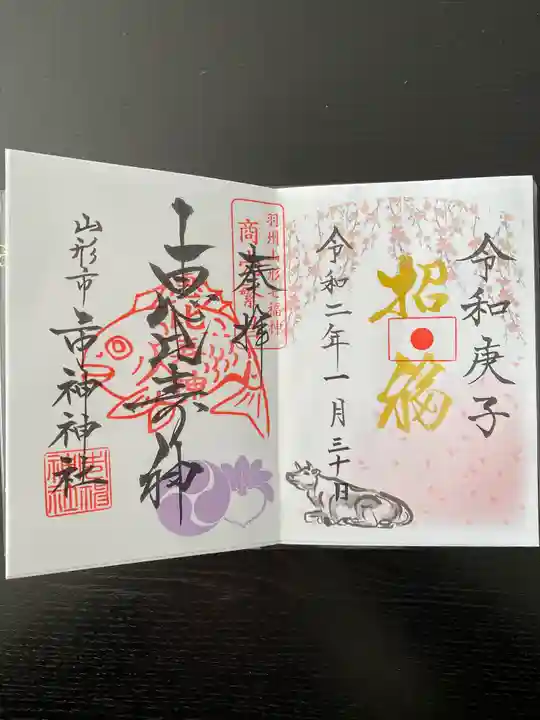 令和庚子
招福
令和二年一月三十日
羽州山形七福神
商売繁
奉拝
恵比寿神
山形市
市神神社